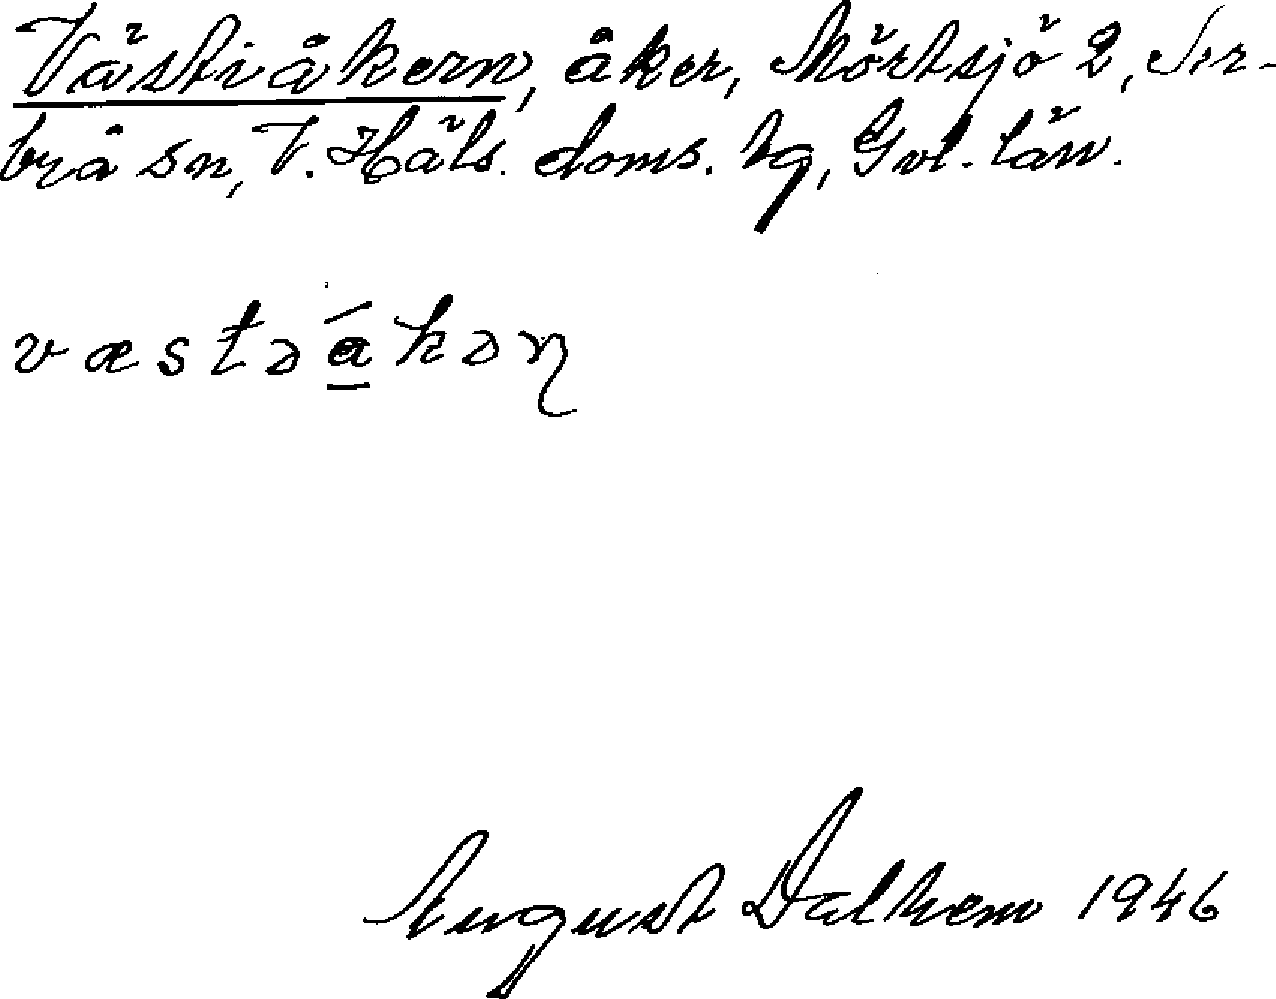 Västiåkern, åker, Mörtsjö 2, Jär-
brå sn, V. Häls. doms. hg, Gvl. län.
væstəákəɳ
August Dalhem 1946